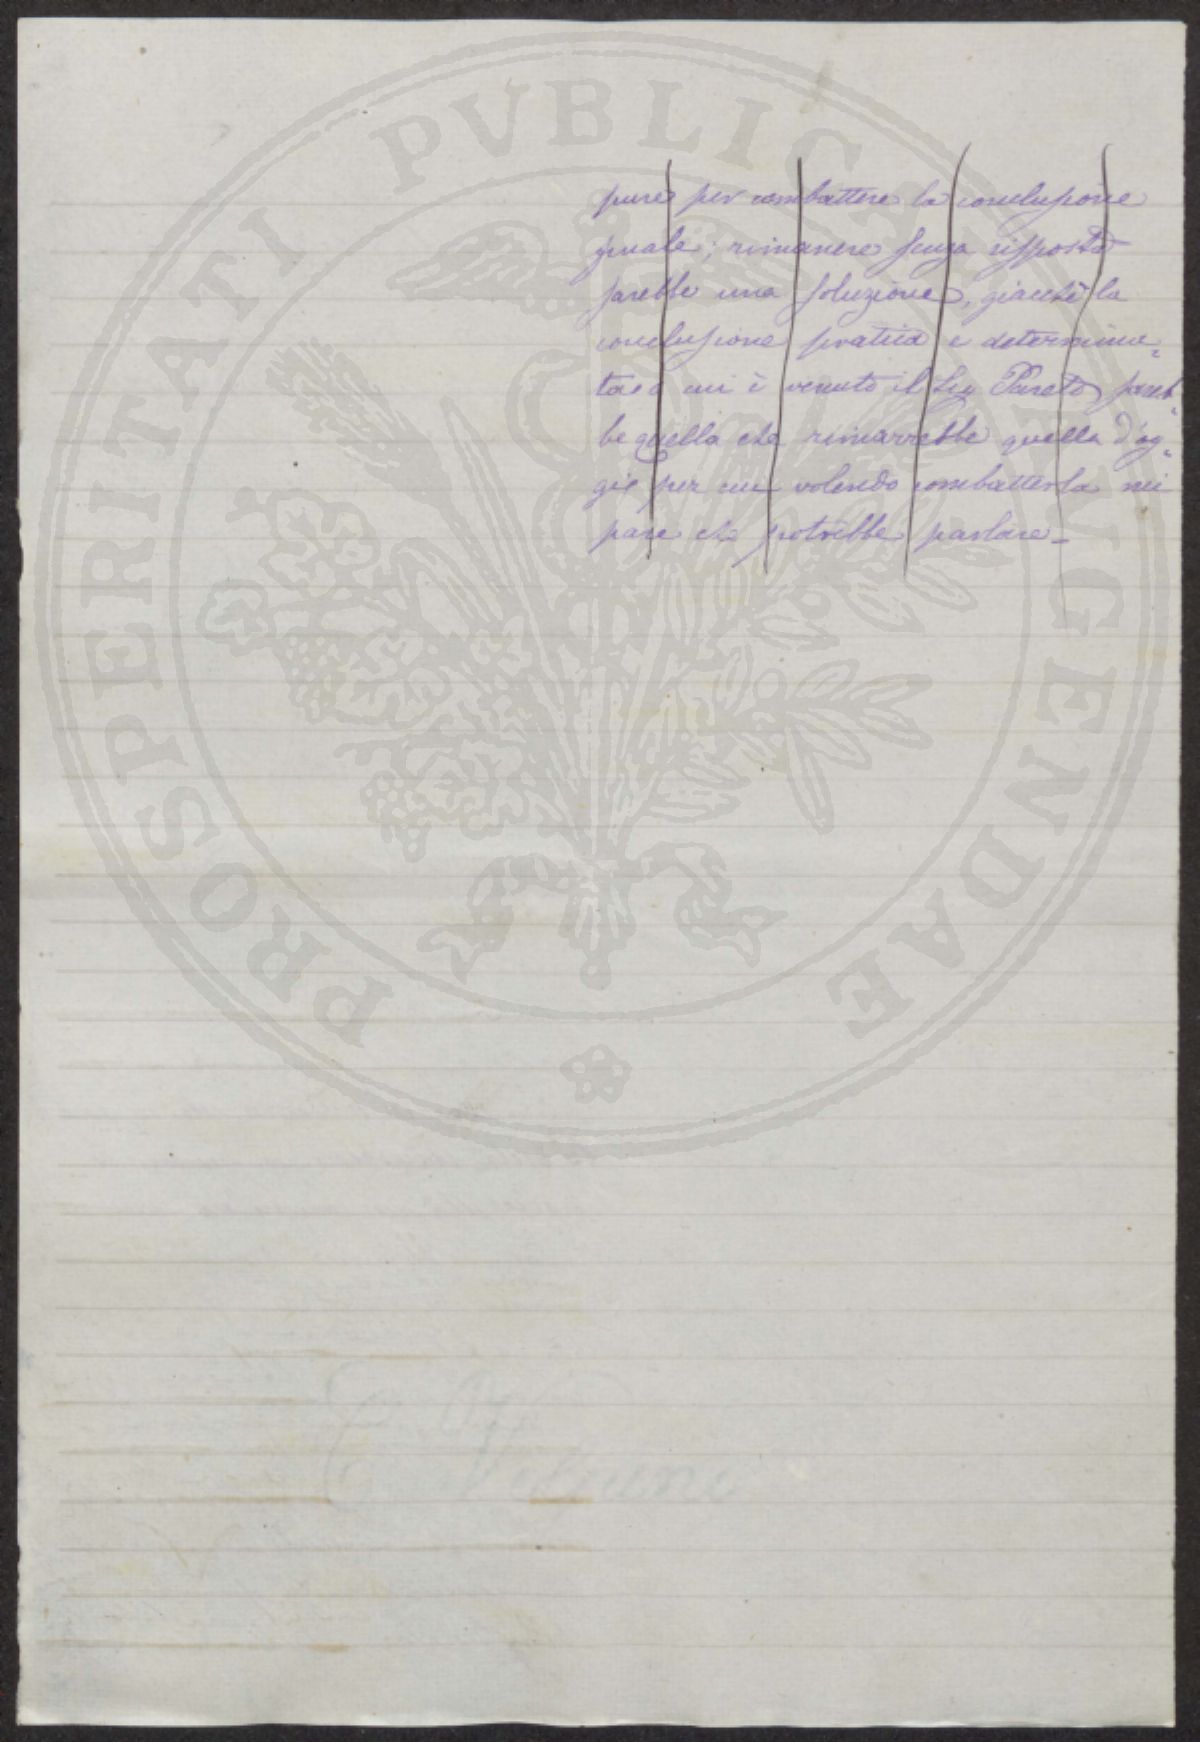 PROSPERITATI PVBLICAE AVGENDAE
pure per combattere la conclusione
finale; rimanere senza risposta
sarebbe una soluzione, giacchè la
conclusione pratica e determina=
ta a cui è venuto il Sig Pareto sareb=
be quella che rimarrebbe quella d'og=
gi e per cui volendo combatterla mi
pare che potrebbe parlare_